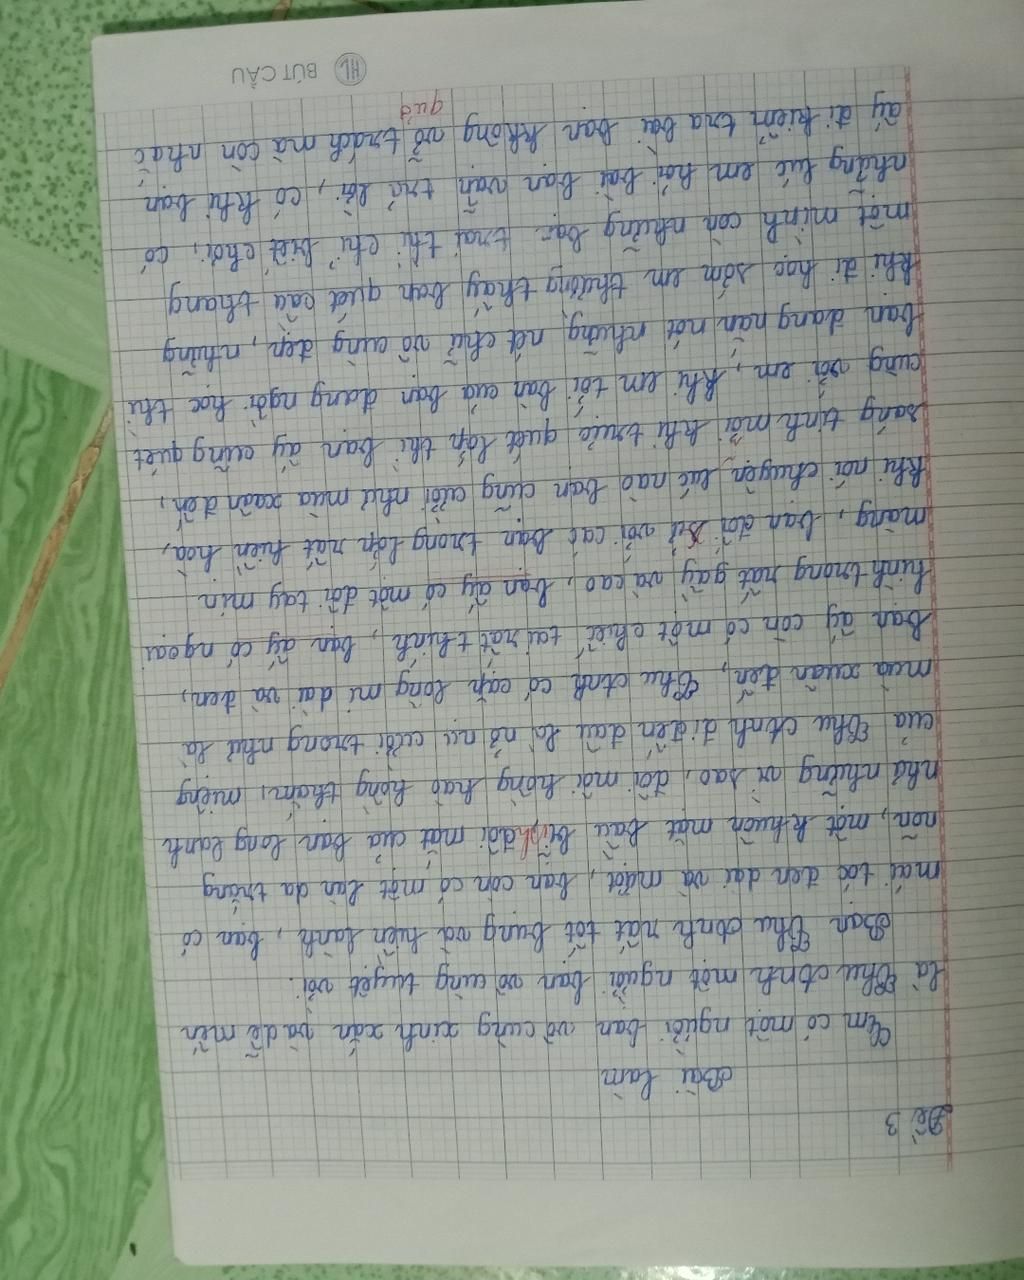 Đề 3
Bài làm
Em có một người bạn vô cùng xinh xắn và dễ mến
là Thu Anh một người bạn vô cùng tuyệt vời.
Bạn Thu Anh rất tốt bụng và hiền lành, bạn có
mái tóc đen dài và mượt, bạn còn có một làn da trắng
nõn, một khuôn mặt bầu bĩnh đôi mắt của bạn long lanh
như những vì sao, đôi môi hồng hào hồng thắm, miệng
của Thu Anh đi đến đâu là nở nụ cười trong như là
mùa xuân đến, Thu Anh có cặp lông mi dài và đen,
bạn ấy còn có một chiếc tai rất thính, bạn ấy có ngoại
hình trong rất gầy và cao, bạn ấy có một đôi tay mịn
màng, bạn đối xử với các bạn trong lớp rất hiền hoà,
khi nói chuyện lúc nào bạn cũng cười như mùa xuân đến,
sáng tinh mơ khi trực quét lớp thì bạn ấy cũng quét
cùng với em, khi em tới bàn của bạn đang ngồi học thì
bạn đang nắn nót những nét chữ vô cùng đẹp, những
khi đi học sớm em thường thấy bạn quét cầu thang
một mình còn những bạn trai thì chỉ biết chơi, có
những lúc em hỏi bài bạn vẫn trả lời, có khi bạn
ấy đi kiểm tra bài bạn không nỡ trách mà còn nhắc
quở
HL BÚT CẦU